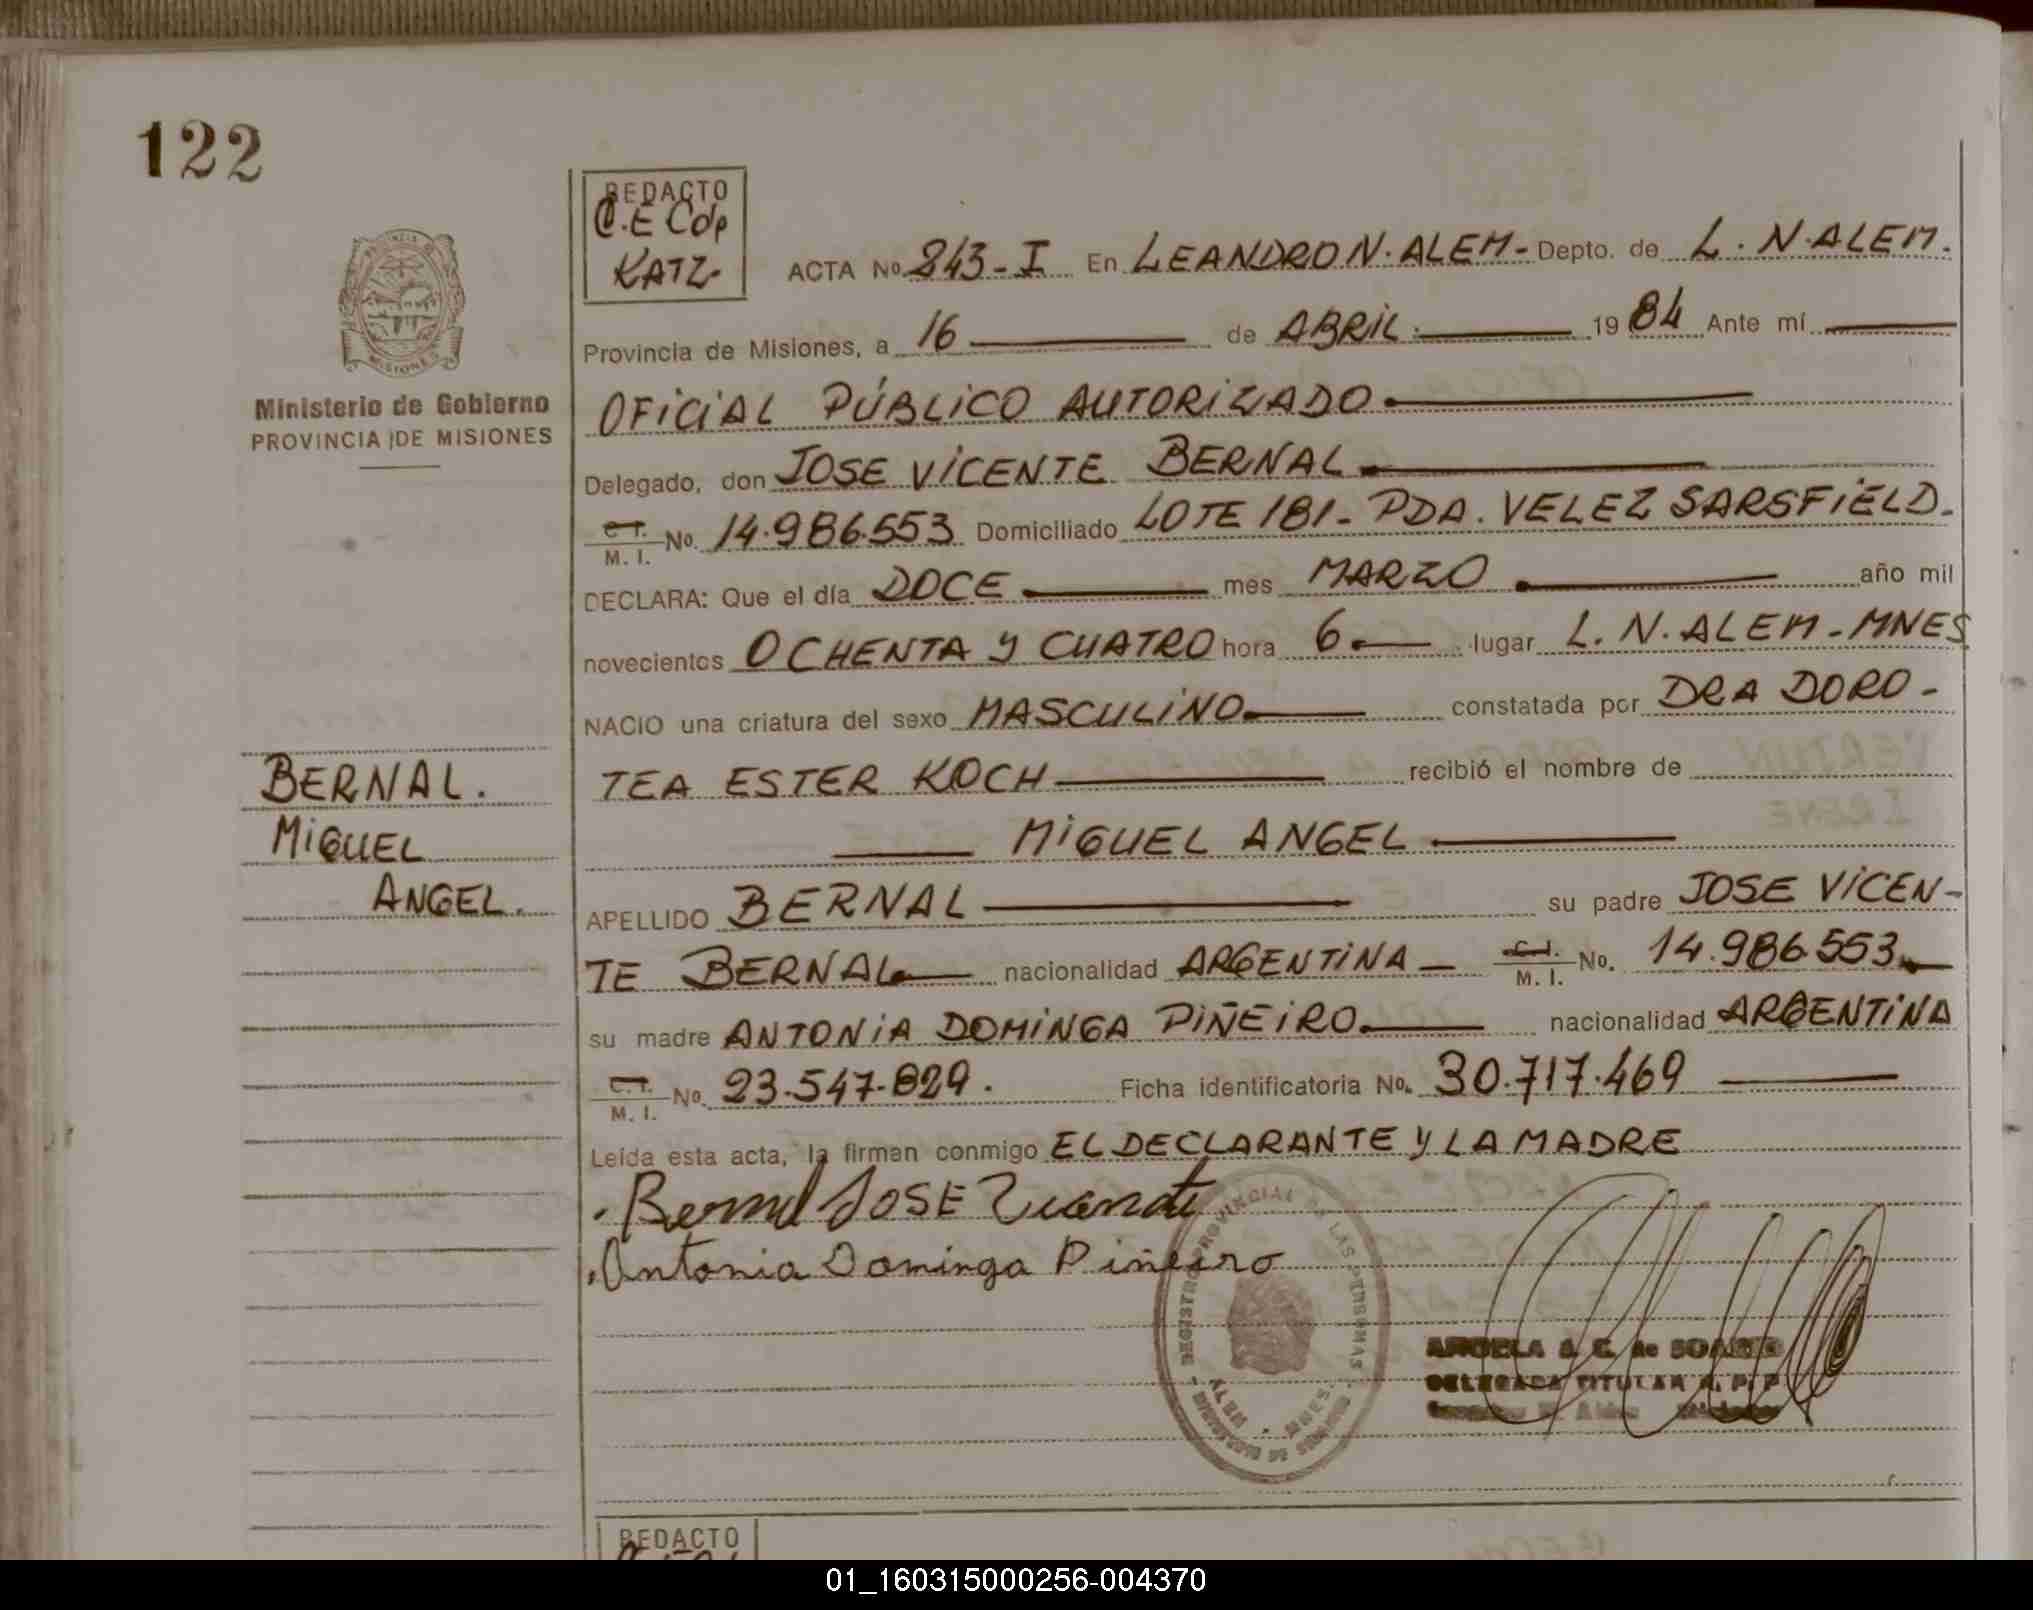 122
REDACTO
C.E Cdp
KATZ
ACTA No 243-I En LEANDRO N. ALEM- Depto. de L. N. ALEM.
Provincia de Misiones, a 16 de ABRIL. 1984 Ante mí
PROVINCIA DE MISIONES
Ministerio de Gobierno
PROVINCIA DE MISIONES
OFICIAL PÚBLICO AUTORIZADO
Delegado, don JOSE VICENTE BERNAL
C.I. M. I. No. 14.986.553 Domiciliado LOTE 181- PDA. VELEZ SARSFIELD.
DECLARA: Que el día DOCE mes MARZO año mil
novecientos OCHENTA Y CUATRO hora 6. lugar L. N. ALEM-MNES
NACIO una criatura del sexo MASCULINO constatada por DRA DORO-
TEA ESTER KOCH recibió el nombre de
MIGUEL ANGEL
BERNAL.
MIGUEL
ANGEL.
APELLIDO BERNAL su padre JOSE VICEN-
TE BERNAL nacionalidad ARGENTINA - C.I. M. I. No. 14.986.553
su madre ANTONIA DOMINGA PIÑEIRO nacionalidad ARGENTINA
C.I. M. I. No. 23.547.829. Ficha identificatoria No. 30.717.469
Leída esta acta, la firman conmigo EL DECLARANTE Y LA MADRE
Bernal JOSE Vicente
Antonia Dominga Piñeiro
REGISTRO PROVINCIAL DE LAS PERSONAS
ALEM - MNES.
ANGELA A. C. de SOARES
DELEGADA TITULAR R. P. P
REDACTO
01_160315000256-004370